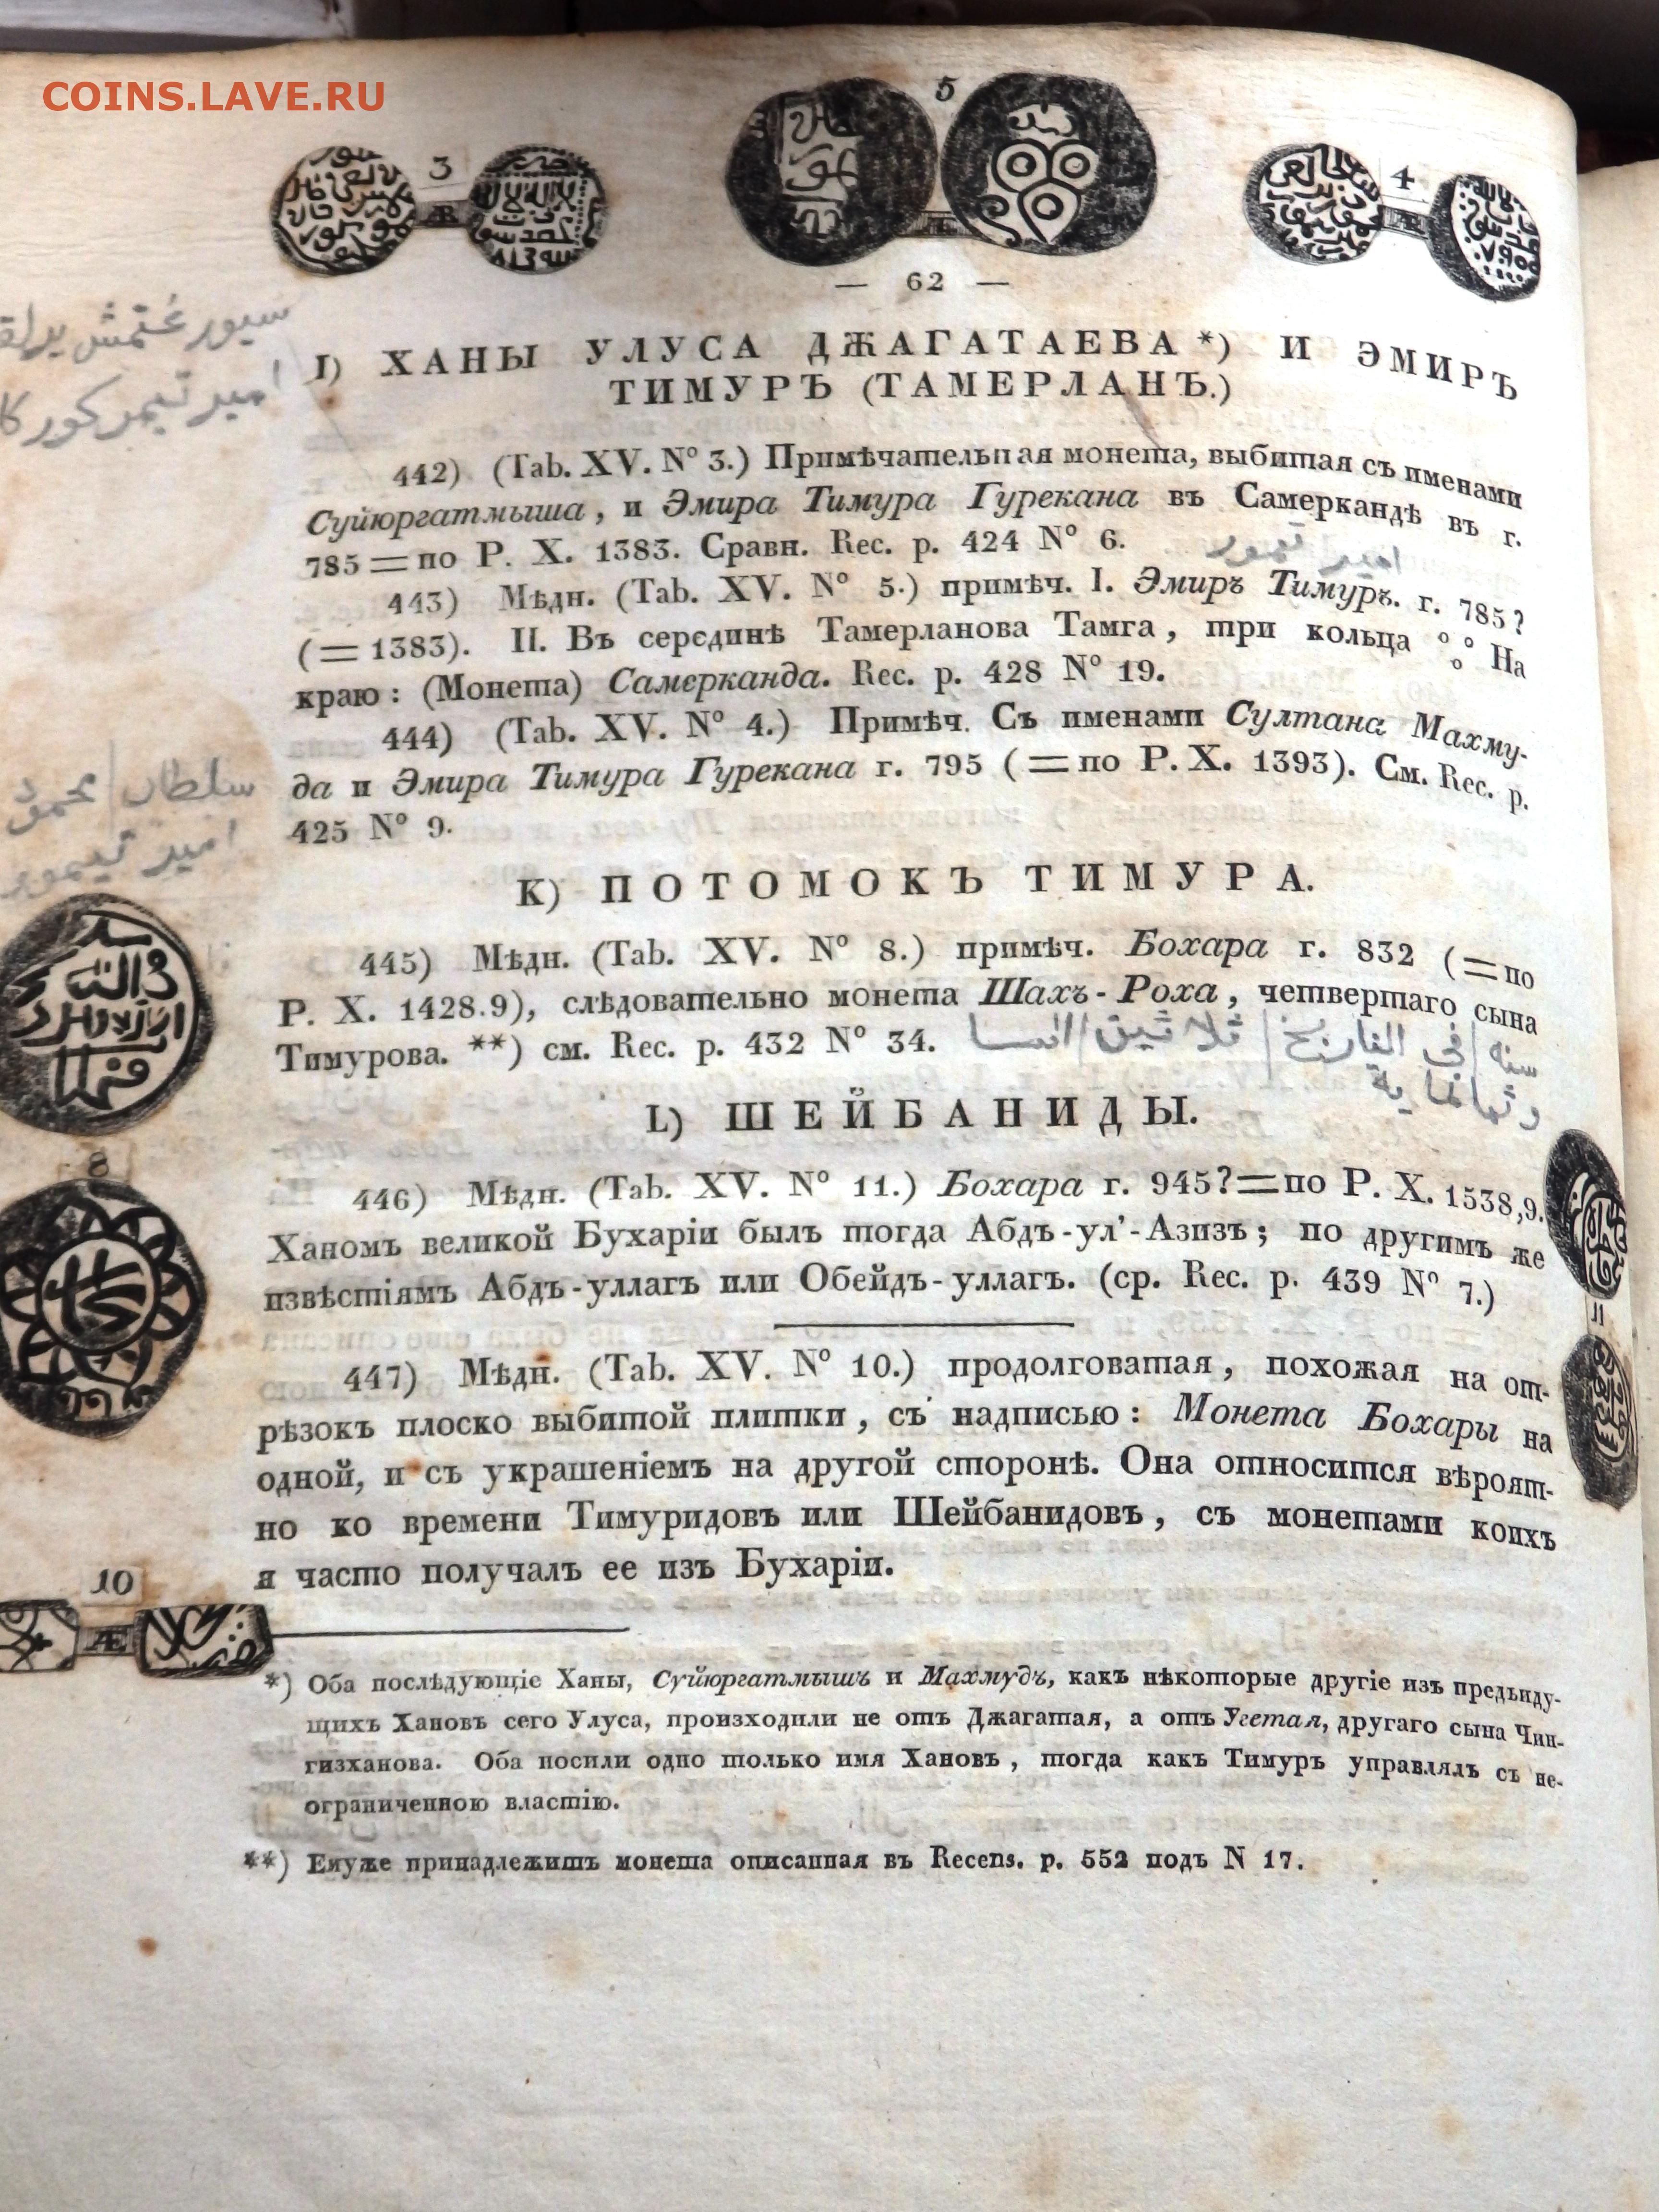 COINS.LAVE.RU
3
5
4
— 62 —
سيورغتمش يرلغ
امير تيمور كوركا
I) ХАНЫ УЛУСА ДЖАГАТАЕВА *) И ЭМИРЪ
ТИМУРЪ (ТАМЕРЛАНЪ.)
442) (Tab. XV. N° 3.) Примѣчательная монета, выбитая съ именами
Суйюргатмыша, и Эмира Тимура Гурекана въ Самеркандѣ въ г.
785 = по Р. Х. 1383. Сравн. Rec. p. 424 N° 6.
امير تيمور
443) Мѣдн. (Tab. XV. N° 5.) примѣч. I. Эмиръ Тимуръ. г. 785?
(= 1383). II. Въ серединѣ Тамерланова Тамга, три кольца °₀° На
краю: (Монета) Самерканда. Rec. p. 428 N° 19.
444) (Tab. XV. N° 4.) Примѣч. Съ именами Султана Махму-
да и Эмира Тимура Гурекана г. 795 (= по Р. Х. 1393). См. Rec. p.
425 N° 9.
سلطان محمود
امير تيمور
K) ПОТОМОКЪ ТИМУРА.
445) Мѣдн. (Tab. XV. N° 8.) примѣч. Бохара г. 832 (= по
Р. Х. 1428.9), слѣдовательно монета Шахъ-Роха, четвертаго сына
Тимурова. **) см. Rec. p. 432 N° 34.
سنه في التاريخ
و ثمانماية
8
L) ШЕЙБАНИДЫ.
446) Мѣдн. (Tab. XV. N° 11.) Бохара г. 945? = по Р. Х. 1538,9.
Ханомъ великой Бухаріи былъ тогда Абдъ-ул’-Азизъ; по другимъ же
извѣстіямъ Абдъ-уллагъ или Обейдъ-уллагъ. (ср. Rec. p. 439 N° 7.)
447) Мѣдн. (Tab. XV. N° 10.) продолговатая, похожая на от-
рѣзокъ плоско выбитой плитки, съ надписью: Монета Бохары на
одной, и съ украшеніемъ на другой сторонѣ. Она относится вѣроят-
но ко времени Тимуридовъ или Шейбанидовъ, съ монетами коихъ
я часто получалъ ее изъ Бухаріи.
10
Æ
*) Оба послѣдующіе Ханы, Суйюргатмышъ и Махмудъ, какъ нѣкоторые другіе изъ предъиду-
щихъ Хановъ сего Улуса, произходили не отъ Джагатая, а отъ Угетая, другаго сына Чин-
гизханова. Оба носили одно только имя Хановъ, тогда какъ Тимуръ управлялъ съ не-
ограниченною властію.
**) Емуже принадлежитъ монета описанная въ Recens. p. 552 подъ N 17.